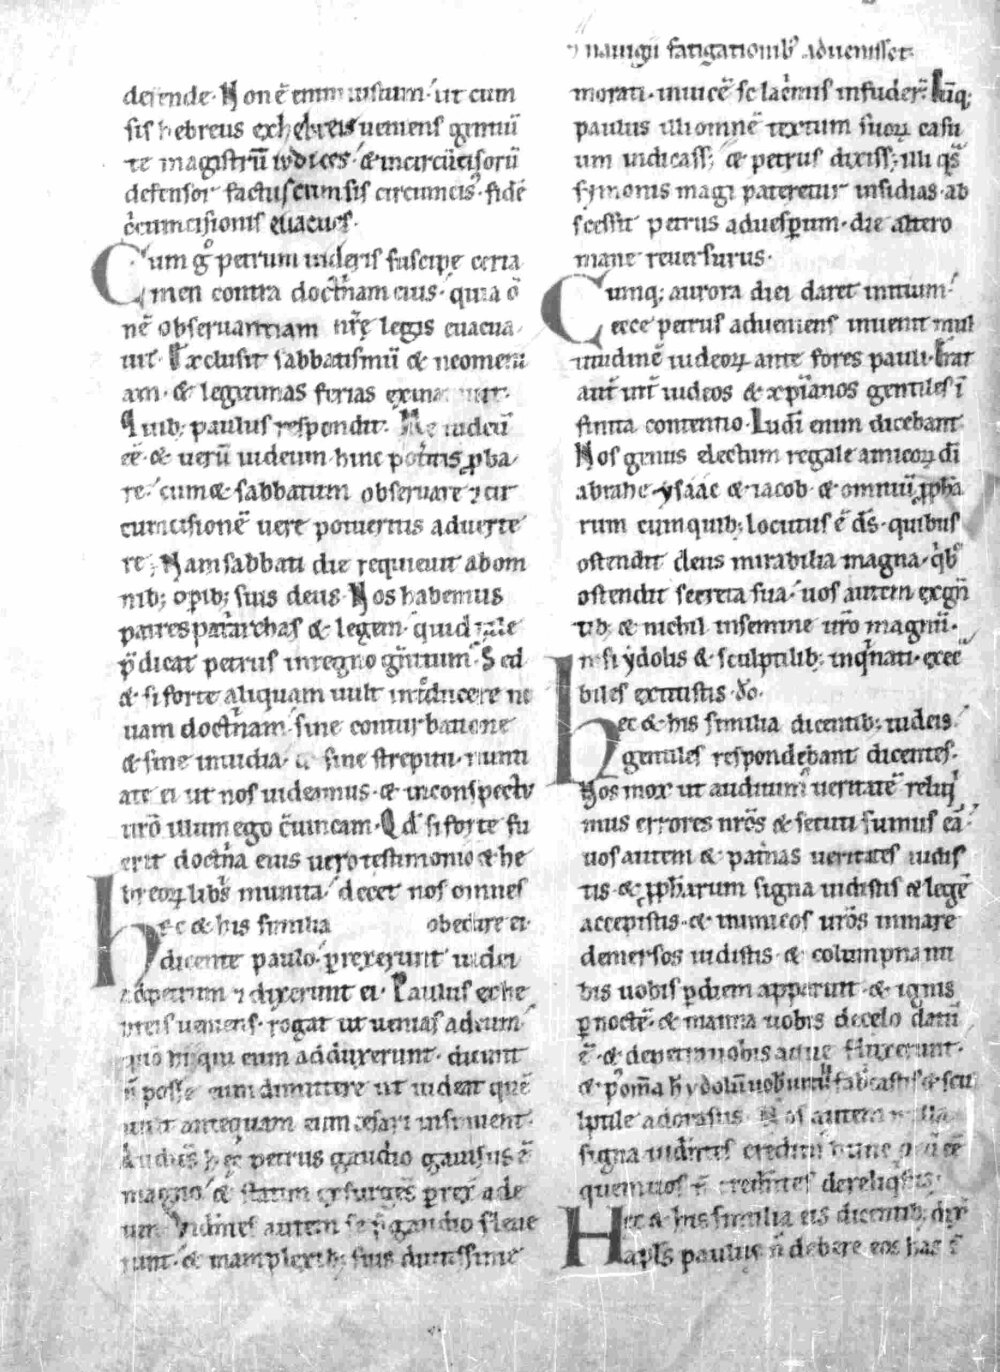 defende· Non ē enim iustum· ut cum
sis hebreus ex hebreis ueniens gentiū
te magistrū iudices· & incircūcisorū
defensor factus cum sis circumcisꝰ· fidē
c̓cumcisionis euacues·
Cum gͦ petrum uideris suscipe certa
men contra doct̓nam eius· quia ō
nē obseruantiam nr̄ę legis euacua
uit· Exclusit sabbatismū & neomeni
am· & legitimas ferias exinaniuit·
Quib; paulus respondit· Me iudeū
ēē· & uerū iudeum· hinc potestis ꝓba
re· cum & sabbatum obseruare ⁊ cir
cumcisionē uere potueritis aduerte
re; Nam sabbati die requieuit ab om
nib; opib; suis deus· Nos habemus
patres patriarchas & legem· quid tale
p̄dicat petrus in regno gentium· Sed
& si forte aliquam uult introducere no
uam doct̓nam· sine conturbatione
& sine inuidia· & sine strepitu· nunti
ate ei ut nos uideamus· & in conspectu
uro illum ego c̄uincam· Qd̓ si forte fu
erit doct̓na eius uero testimonio & he
breoꝝ libris munita· decet nos omnes
obedire ei·
hec & his similia
dicente paulo· ꝑrexerunt iudei
ad petrum ⁊ dixerunt ei· Paulus ex he
breis ueniens· rogat ut uenias ad eum·
qm̄ hi qui eum adduxerunt· dicunt
n̄ posse eum dimittere ut uideat quē
uult antequam eum cesari insinuent·
Audiēs hęc petrus gaudio gauisus ē
magno· & statim exsurgēs ꝑrex̄ ad e
um· Videntes autem se p̄ gaudio fleue
runt· & in amplexib; suis diutissime
⁊ nauigii fatigationibꝰ aduenisset·
morati· inuicē se lac̓mis infuder̄· Cūq;
paulus illi omnē textum suoꝝ casu
um indicass; & petrus dixiss; illi qͣs
symonis magi pateretur insidias· ab
scessit petrus ad uesꝑum· die altero
mane reuersurus·
Cumq; aurora diei daret initium·
ecce petrus adueniens inuenit mul
titudinē iudeoꝝ ante fores pauli· Erat
aūt int̄ iudeos & xp̄ianos gentiles ī
finita contentio· Iudei enim dicebant·
Nos genus electum regale amicoꝝ dī
abrahe· ysaac & iacob· & omniū ꝓpha
rum cum quib; locutus ē ds̄· quibus
ostendit deus mirabilia magna· qͥbꝰ
ostendit secreta sua· uos autem ex gen
tib; & nichil in semine uro magnū·
nisi ydolis & sculptilib; inqͥnati· exec
biles extitistis·
hec & his similia dicentib; iudeis·
gentiles respondebant dicentes·
Nos mox ut audiuim; ueritatē reliqͥ
mus errores nros & secuti sumus eā·
uos autem & patnas uertutes uidis
tis· & ꝓpharum signa uidistis & legē
accepistis· & inimicos uros in mare
demersos uidistis· & columpna nu
bis uobis p diem apparuit· & ignis
ꝑ noctē· & manna uobis de celo datū
ē· & de petra uobis aque fluxerunt·
& post oma h̄ ydolū uobis uituli fabricastis & scu
lptile adorastis· Nos autem nulla
signa uidentes credimꝰ hunc dm̄ ēē
quem uos n̄ credentes dereliqͥstis·
Hec & his similia eis dicentib; dix̄
apls paulus n̄ debere eos has ī